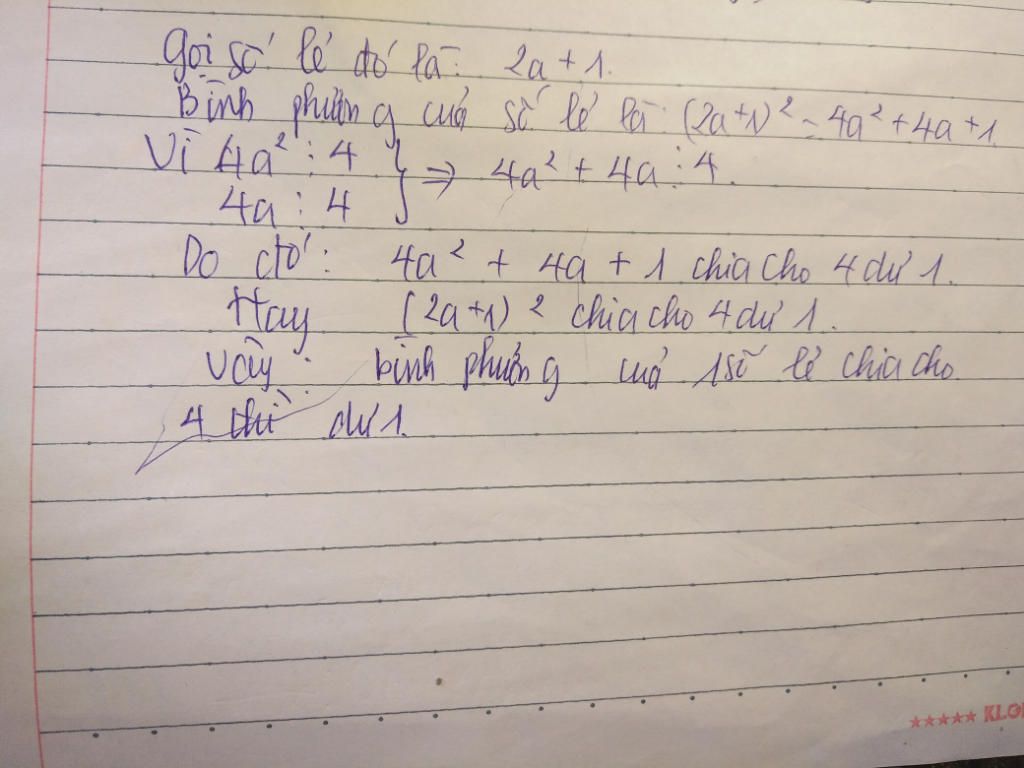 Gọi số lẻ đó là: 2a + 1.
Bình phương của số lẻ là: (2a+1)² = 4a² + 4a + 1
Vì 4a² ⋮ 4 } ⇒ 4a² + 4a ⋮ 4.
4a ⋮ 4
Do đó: 4a² + 4a + 1 chia cho 4 dư 1.
Hay (2a+1)² chia cho 4 dư 1.
Vậy: bình phương của 1 số lẻ chia cho
4 thì dư 1.
★★★★★ KLO